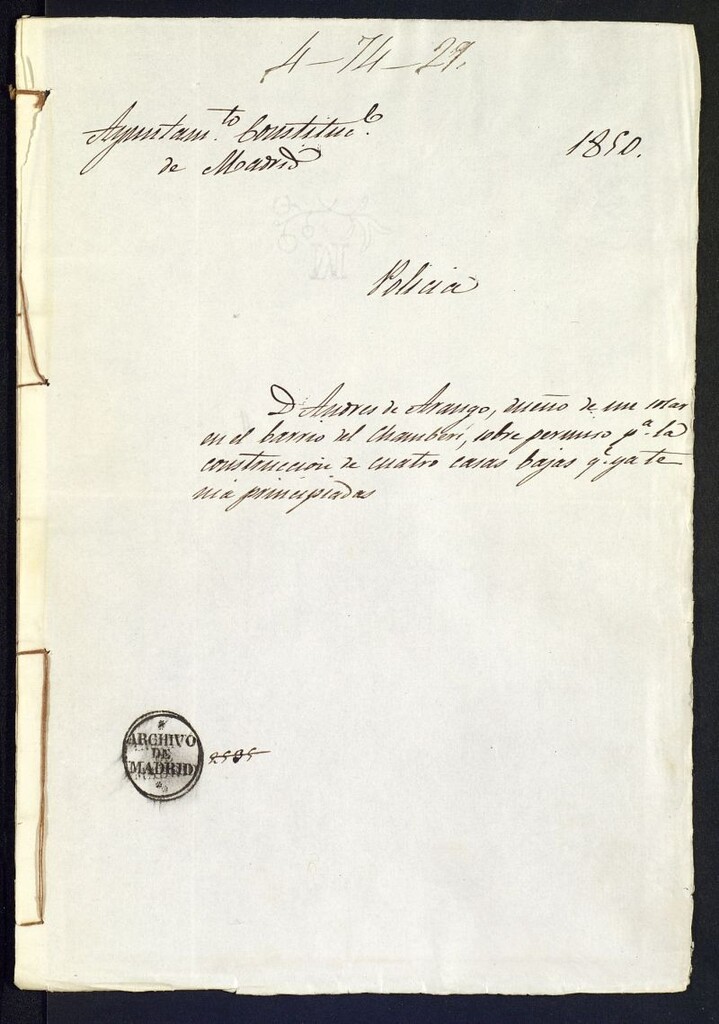 4-74-29.
Ayuntam.to Constituc.l
1850.
de Madrid
Policia
D Andres de Arango, dueño de un solar
en el barrio del Chamberí, sobre permiso p.a la
construccion de cuatro casas bajas q.e ya te
nia principiadas
ARCHIVO
DE
MADRID